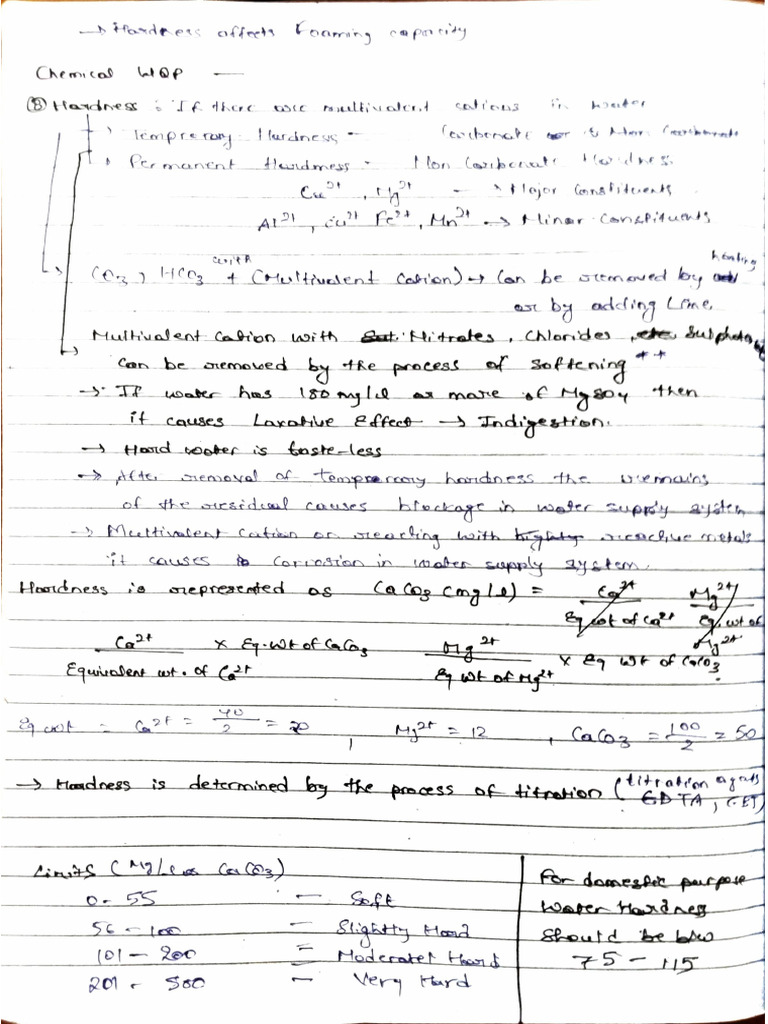 → Hardness affects Foaming capacity
Chemical WQP —
⑧ Hardness : If there are multivalent cations in water
→ Temprerory Hardness - Carbonate or & Non Carbonate
→ Permanent Hardmess - Non Carbonate Hardness
Ca²⁺, Mg²⁺ → Major Constituents
Al³⁺, Cu²⁺ Fe²⁺, Mn²⁺ → Minor Constituents
CO₃, HCO₃ + (Multivalent Cation) → Can be removed by heating
or by adding Lime.
Multivalent Cation with Nitrates, Chlorides, etc Sulphates
can be removed by the process of softening **
→ If water has 180 mg/l or more of MgSO4 then
it causes Laxative Effect → Indigestion.
→ Hard water is taste-less
→ After removal of temprerory hardness the remains
of the residual causes blockage in water supply system
→ Multivalent Cation on reacting with highly reactive metals
it causes to Corrosion in water supply system.
Hardness is represented as CaCO3 (mg/l) = Ca²⁺ / Eq wt of Ca²⁺ Mg²⁺ / Eq. wt of Mg²⁺
Ca²⁺ / Equivalent wt. of Ca²⁺ × Eq. wt of CaCO3 Mg²⁺ / Eq wt of Mg²⁺ × Eq wt of CaCO3
Eq wt = Ca²⁺ = 40/2 = 20, Mg²⁺ = 12, CaCO3 = 100/2 = 50
→ Hardness is determined by the process of titration (titration agents EDTA,
Limits (Mg/L as CaCO3)
0 - 55 — Soft
56 - 100 — Slightly Hard
101 - 200 = Moderatel Hard
201 - 500 — Very Hard
For domestic purpose
Water Hardness
Should be b/w
75 - 115